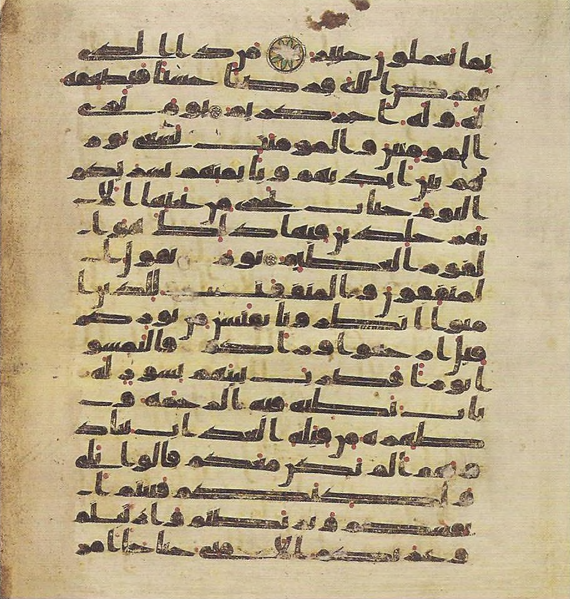 بما تعملون خبير من ذا الذي
يقرض الله قرضا حسنا فيضعفه
له وله اجر كريم يوم ترى
المومنين والمومنت يسعى نور
هم بين ايديهم وبايمنهم بشريكم
اليوم جنات تجري من تحتها الا
نهر خلدين فيها ذلك هو ا
لفوز العظيم يوم يقول ا
لمنفقون والمنفقت للذين ا
منوا انظرونا نقتبس من نوركم
قيل ارجعوا وراكم فالتمسو
ا نورا فضرب بينهم بسور له
باب باطنه فيه الرحمه و
ظهره من قبله العذاب يناد
ونهم الم نكن معكم قالوا بلى
ولكنكم فتنتم ا
نفسكم وتربصتم وارتبتم
وغرتكم الاماني حتى جا امر